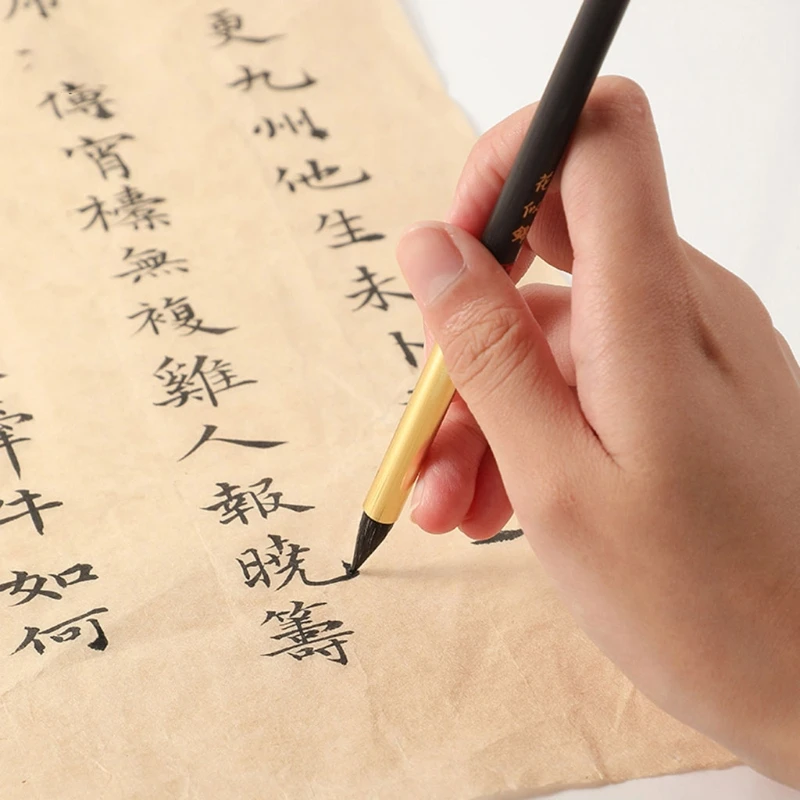 更九州他生未卜
傳宵無複雞人報曉籌
牽牛如何
花似